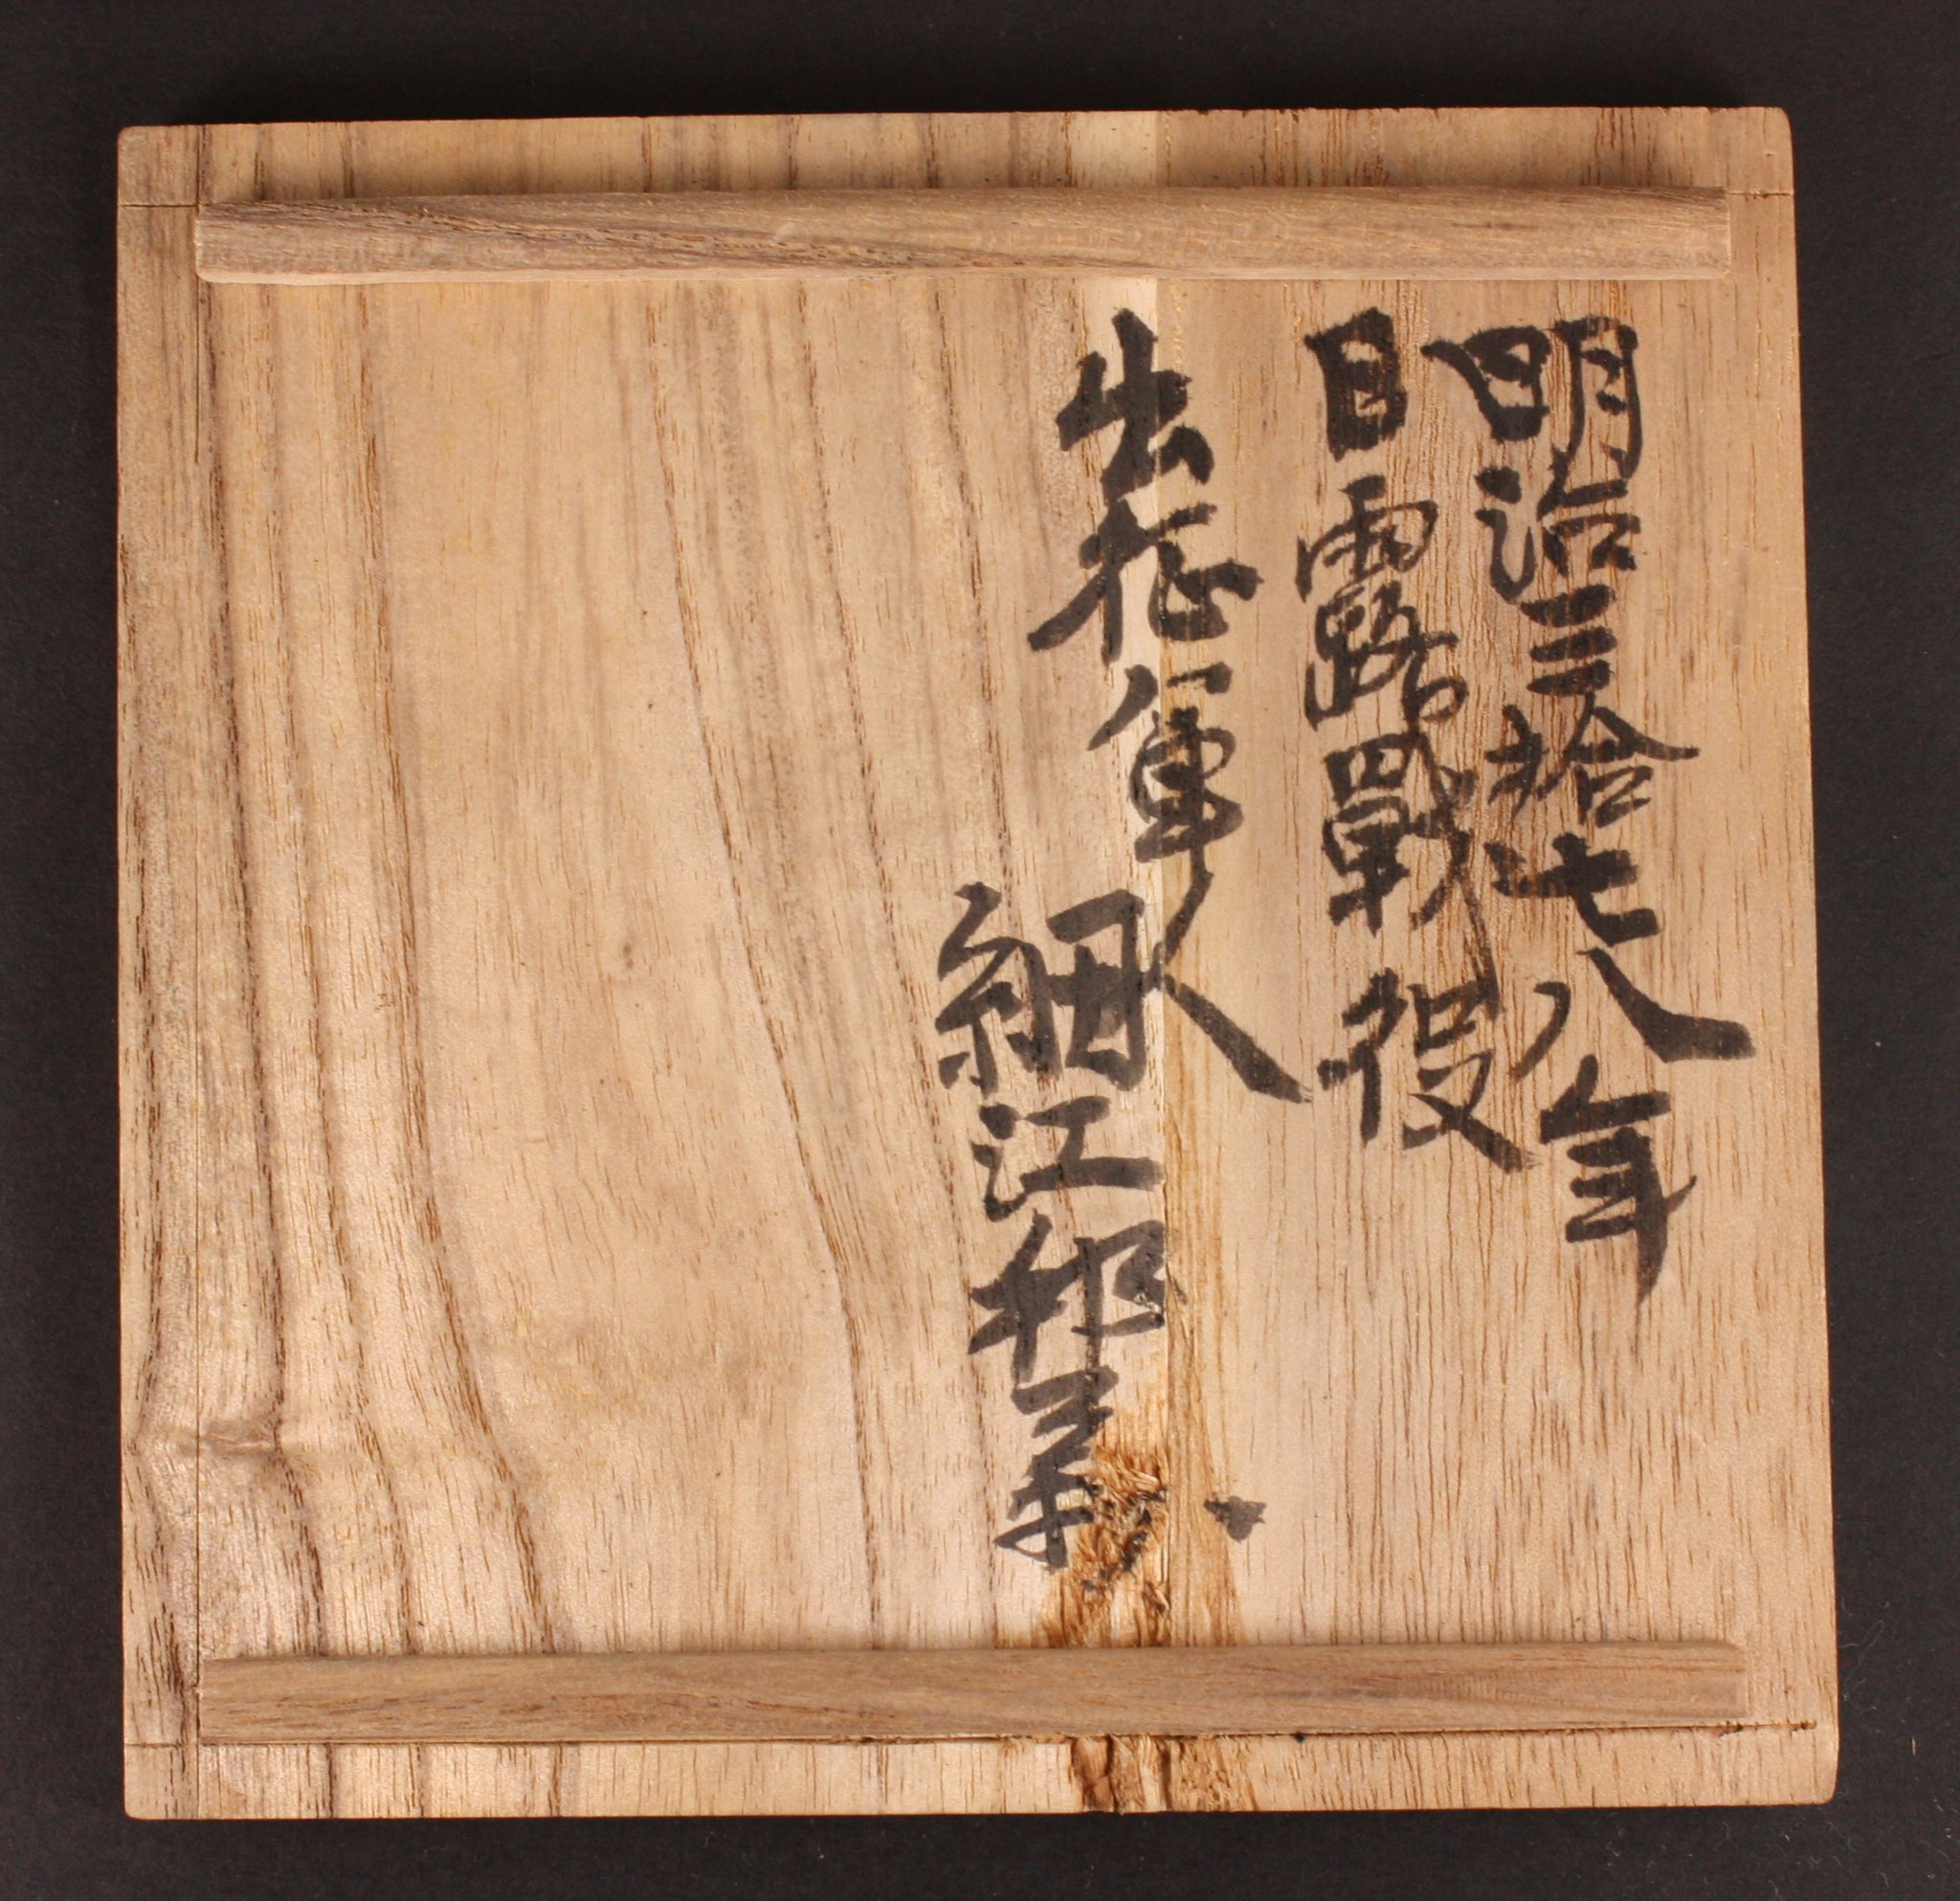 明治三拾七八年
日露戰役
出征軍人
細江邦義